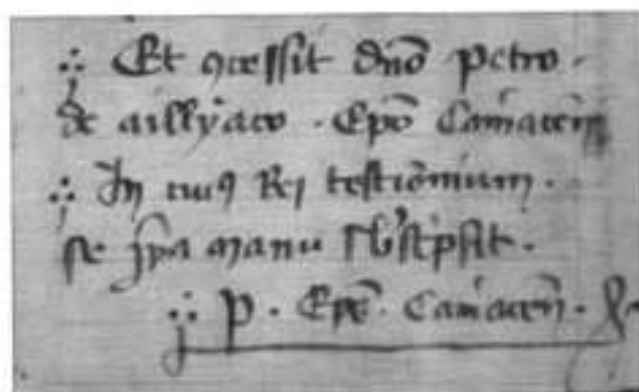 ∴ Et ꝯcessit dn̄o Petro ·
de aillẏaco · Ep̄o Cam̄acen̄
∴ In cuiꝰ Rei testiōnium ·
se ip̄a manu sb̓sc̓psit ·
∴ P · Ep̄c · Cam̄acen̄ ·